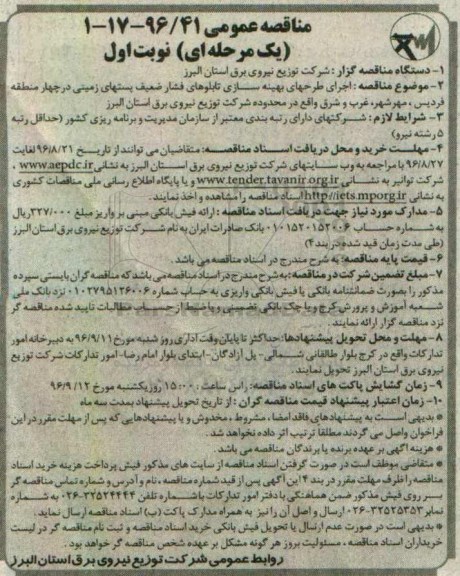 مناقصه عمومی ۹۶/۴۱-۱۷-۱
(یک مرحله ای) نوبت اول
۱- دستگاه مناقصه گزار : شرکت توزیع نیروی برق استان البرز
۲- موضوع مناقصه : اجرای طرحهای بهینه سازی تابلوهای فشار ضعیف پستهای زمینی در چهار منطقه
فردیس ، مهرشهر، غرب و شرق واقع در محدوده شرکت توزیع نیروی برق استان البرز
۳- شرایط لازم : شرکتهای دارای رتبه بندی معتبر از سازمان مدیریت و برنامه ریزی کشور (حداقل رتبه
۵ رشته نیرو)
۴- مهلت خرید و محل دریافت اسناد مناقصه: متقاضیان می توانند از تاریخ ۹۶/۸/۲۱ لغایت
۹۶/۸/۲۷ با مراجعه به وب سایتهای شرکت توزیع نیروی برق استان البرز به نشانی www.aepdc.ir ،
شرکت توانیر به نشانی www.tender.tavanir.org.ir و یا پایگاه اطلاع رسانی ملی مناقصات کشوری
به نشانی http://iets.mporg.ir اسناد مناقصه را مشاهده و اخذ نمایند.
۵- مدارک مورد نیاز جهت دریافت اسناد مناقصه : ارائه فیش بانکی مبنی بر واریز مبلغ ۳۲۷/۰۰۰ ریال
به شماره حساب ۰۱۰۱۵۲۰۱۵۲۰۰۶ بانک صادرات ایران به نام شرکت توزیع نیروی برق استان البرز
(طی مدت زمان قید شده در بند ۴)
۶- قیمت پایه مناقصه: به شرح مندرج در اسناد مناقصه می باشد .
۷- مبلغ تضمین شرکت در مناقصه: به شرح مندرج در اسناد مناقصه می باشد که مناقصه گران بایستی سپرده
مذکور را بصورت ضمانتنامه بانکی یا فیش بانکی واریزی به حساب شماره ۰۱۰۲۷۹۵۱۲۶۰۰۶ نزد بانک ملی
شعبه آموزش و پرورش کرج و یا چک بانکی تضمینی و یا ضبط از حساب مطالبات تایید شده مناقصه گر
نزد مناقصه گزار ارائه نمایند .
۸- مهلت و محل تحویل پیشنهادها: حداکثر تا پایان وقت اداری روز شنبه مورخ ۹۶/۹/۱۱ به دبیرخانه امور
تدارکات واقع در کرج بلوار طالقانی شمالی- پل آزادگان- ابتدای بلوار امام رضا- امور تدارکات شرکت توزیع
نیروی برق استان البرز تحویل نمایند.
۹- زمان گشایش پاکت های اسناد مناقصه: راس ساعت ۱۵:۰۰ روز یکشنبه مورخ ۹۶/۹/۱۲
۱۰- زمان اعتبار پیشنهاد قیمت مناقصه گران : از تاریخ تحویل پیشنهاد بمدت سه ماه
* بدیهی است به پیشنهادهای فاقد امضا ، مشروط ، مخدوش و یا پیشنهادهایی که پس از مهلت مقرر در این
فراخوان واصل می گردند مطلقا ترتیب اثر داده نخواهد شد.
* هزینه آگهی بر عهده برنده یا برندگان مناقصه می باشد .
* متقاضی موظف است در صورت گرفتن اسناد مناقصه از سایت های مذکور فیش پرداخت هزینه خرید اسناد
مناقصه را ظرف مهلت مقرر در بند ۴ این آگهی پس از قید شماره مناقصه ، نام و آدرس و شماره تماس مناقصه گر
بر روی فیش مذکور ضمن هماهنگی با دفتر امور تدارکات با شماره تلفن ۳۲۵۲۴۴۴۴-۰۲۶ به شماره
نمابر ۳۲۵۲۵۳۵۳-۰۲۶ ارسال و اصل آن را نیز به همراه مدارک پاکت (ب) اسناد مناقصه ارسال نماید.
* بدیهی است در صورت عدم ارسال یا تحویل فیش بانکی خرید اسناد مناقصه و ثبت نام مناقصه گر در لیست
خریداران اسناد مناقصه ، مسئولیت بروز هر گونه مشکل بر عهده شخص مناقصه گر خواهد بود .
روابط عمومی شرکت توزیع نیروی برق استان البرز